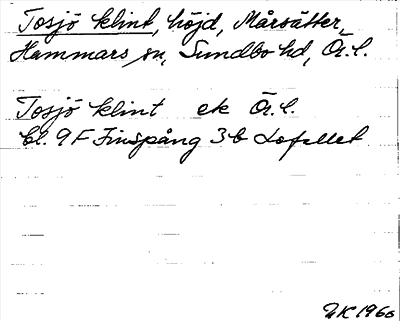 Tosjö klint, höjd, Mårsätter,
Hammars sn, Sundbo hd, Ö.l.
Tosjö klint ek Ö.l.
bl. 9F Finspång 3b Lofallet
1966